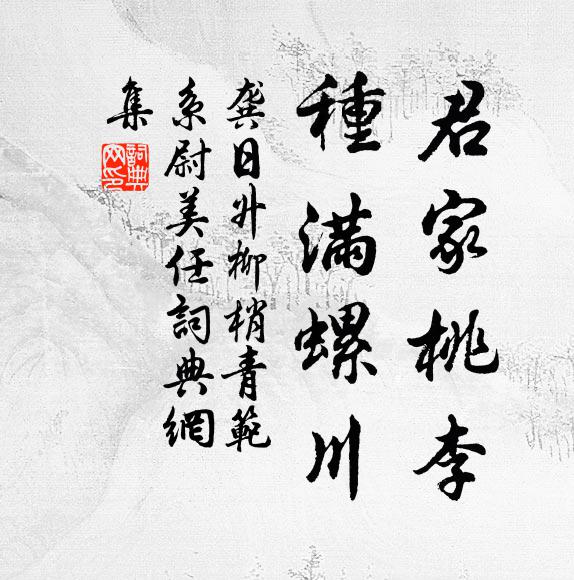 君家桃李
種滿螺川
龚日升柳梢青範
系尉美任詞典網
集
詞典
网印